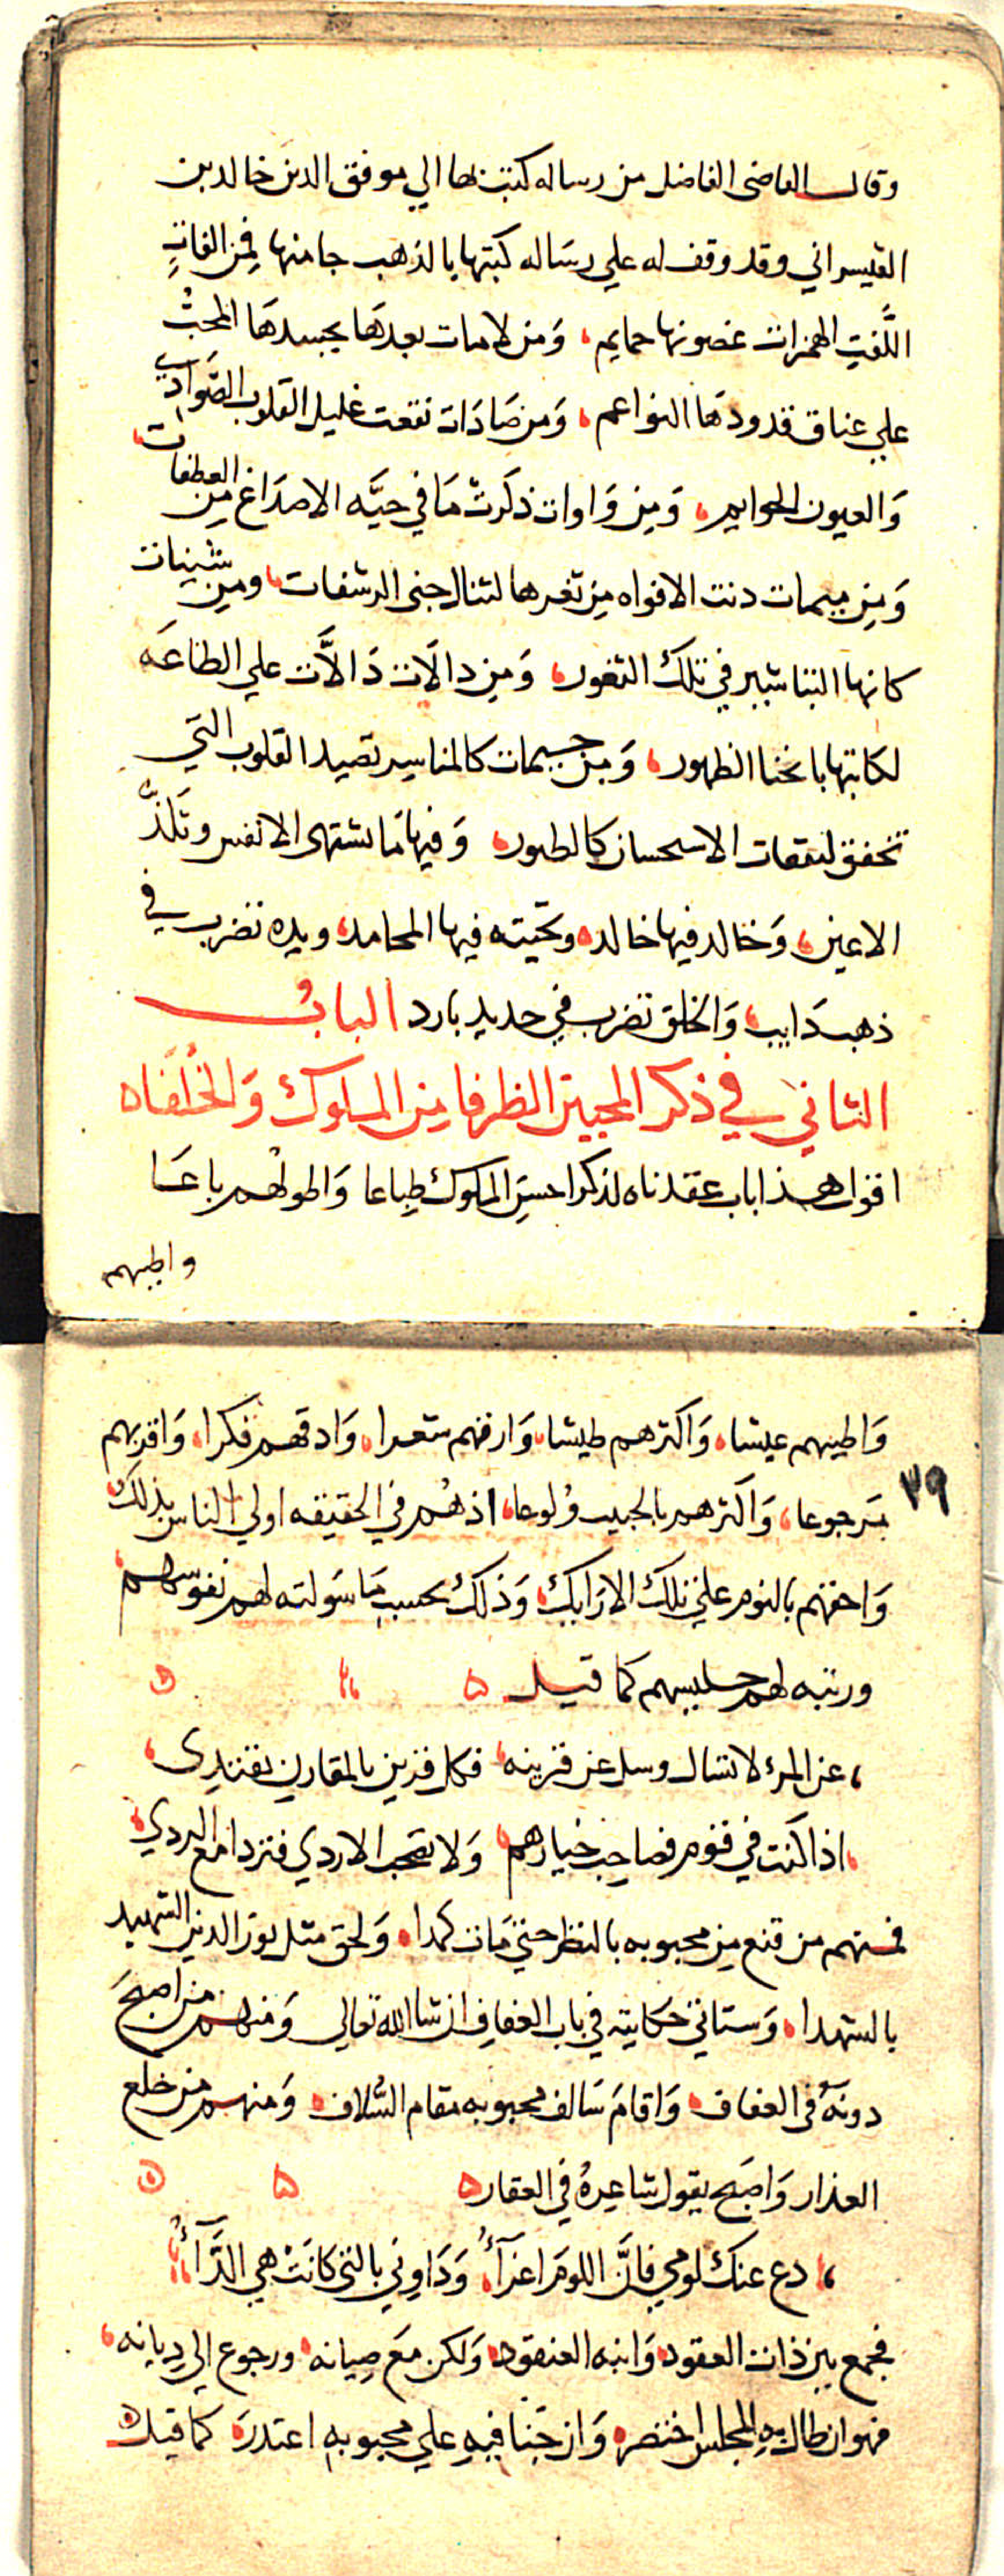 وقال القاضي الفاضل من رساله كتبت بها الي موفق الدين خالد بن
القيسراني وقد وقف له علي رساله كتبتها بالذهب جا منها فمن الفاتٍ
اللَّفتِ الهمزات غصونها حمايم، وَمن لامات بعدهَا يحسدهَا المحبُّ
علي عناق قدودهَا النواعم، وَمن صَادَات نقعت غليل القلوب الصَّوادي
وَالعيون الحوايم، وَمِن وَاوات ذكرتْ مَا في حيَّه الاصدَاغ من العطفات
وَمِن ميمات دنت الافواه مِن ثغرها لتنال جنى الرشفات، ومن سينات
كانها التناشير في تلك الثغور، وَمِن دالَات دَالاَّت علي الطاعَه
لكاتبها بانحنا الظهور، وَمِن جيمات كالمناسير تصيد القلوب التي
تخفق لنغمات الاستحسان كالطيور، وَفيها مَا تشتهى الانفس وتلذُّ
الاعين، وَخالد فيها خالد، وتحيته فيها المحامد، ويده تضرب في
ذهب ذَايب، وَالخلق تضرب في حديد بارد البابُ
الثاني في ذكر المحبين الظرفا مِن الملوك وَالخُلفاه
اقول هذا باب عقدناه لذكر احسن الملوك طِباعا وَاطولهم باعَا
واطيبهم
وَاطيبهم عيشا، وَاكثرهم طيشا، وَارقهم شعرا، وَادقهم فكرا، وَاقربهم
٣٩
مَرجوعا، وَاكثرهم بالحبيب وُلوعا، اذ هُم في الحقيقه اولي الناس بذلك،
وَاحقهم بالنوم علي تلك الارَايك، وَذلك بحسب مَا سَولته لهم نفوسهم،
ورتبه لهم جليسهم كما قيل
، عن المرء لا تسال وسل عن قرينه، فكل قرين بالمقارن يقتدِى،
، اذا كنت في قوم فصاحب خيارهم، وَلا تصحب الاردي فتردا مع الردي،
فمنهم من قنع مِن محبوبه بالنظر حتي مَات كمدا، وَلحق مثل نور الدين الشهيد
بالشهدا، وَستاتي حَكايته في باب العفاف ان شا الله تعالي وَمنهم من اصبحَ
دونهُ في العفاف، وَاقامَ سَالف محبوبه مقام السُّلاف، وَمنهم من خلع
العذار وَاصبَح يقول شاعِرهُ في العقار
، دع عنك لومي فانَّ اللومَ اغرَآءُ، وَدَاوِني بالتي كانَتْ هي الدَّآءُ،
فجمع بين ذات العقود، وَابنه العنقود، وَلكن مَع صِيانه، ورجوع الي دِيانه،
فهو ان طال بهِ المجلس اختصر، وَان جَنا فيهِ علي محبوبه اعتذرَ، كما قيل